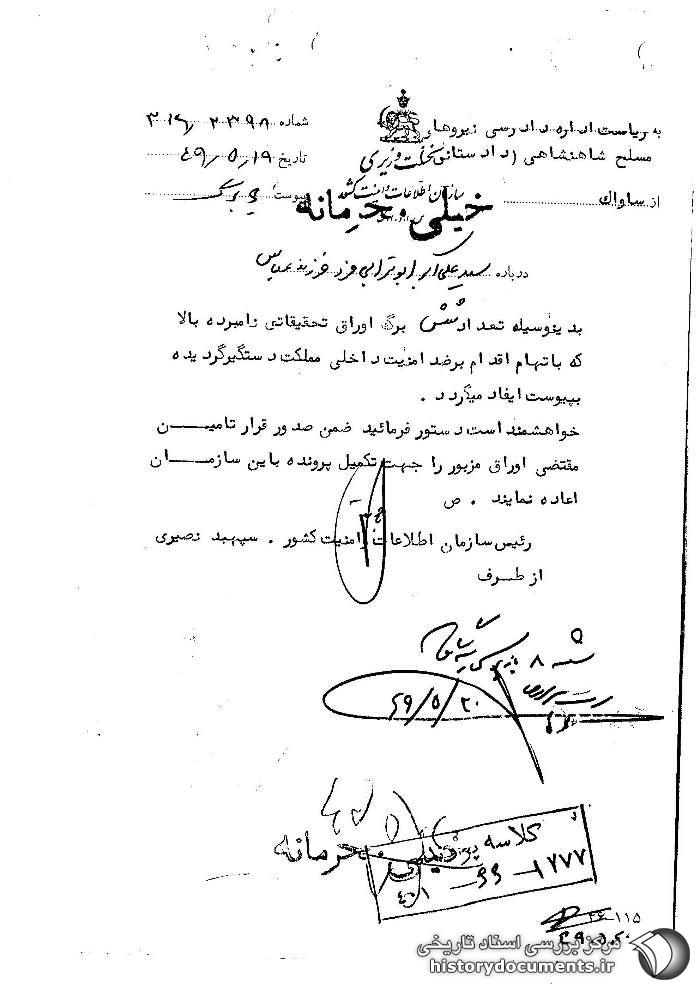 به ریاست اداره دادرسی نیروهای
مسلح شاهنشاهی (دادستانی نخست وزیری
از ساواک
شماره ۳۱۶/۲۳۹۸
تاریخ ۴۹/۵/۱۹
پیوست
سازمان اطلاعات و امنیت کشور
خیلی محرمانه
درباره سید علی اکبر ابوترابی فرد فرزند عباس
بدینوسیله تعداد شش برگ اوراق تحقیقاتی نامبرده بالا
که باتهام اقدام برضد امنیت داخلی مملکت دستگیرگردیده
بپیوست ایفاد میگردد .
خواهشمند است دستور فرمائید ضمن صدور قرار تامیــن
مقتضی اوراق مزبور را جهت تکمیل پرونده باین سازمــان
اعاده نمایند . ص
رئیس سازمان اطلاعات و امنیت کشور . سپهبد نصیری
از طرف
شعبه ۸
۴۹/۵/۲۰
خیلی محرمانه
کلاسه
۱۲۷۷-۶۶-
۱۱۵
مرکز بررسی اسناد تاریخی
historydocuments.ir